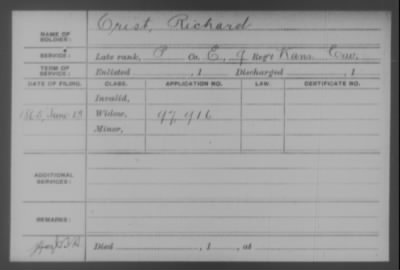 NAME OF SOLDIER: Crist, Richard
SERVICE: Late rank, P Co. E, 9 Reg't Kans. Cav.
TERM OF SERVICE: Enlisted , 1 Discharged , 1
DATE OF FILING. CLASS. APPLICATION NO. LAW. CERTIFICATE NO.
Invalid,
1865, June 13 Widow, 97,916
Minor,
ADDITIONAL SERVICES:
REMARKS:
Died , 1 , at